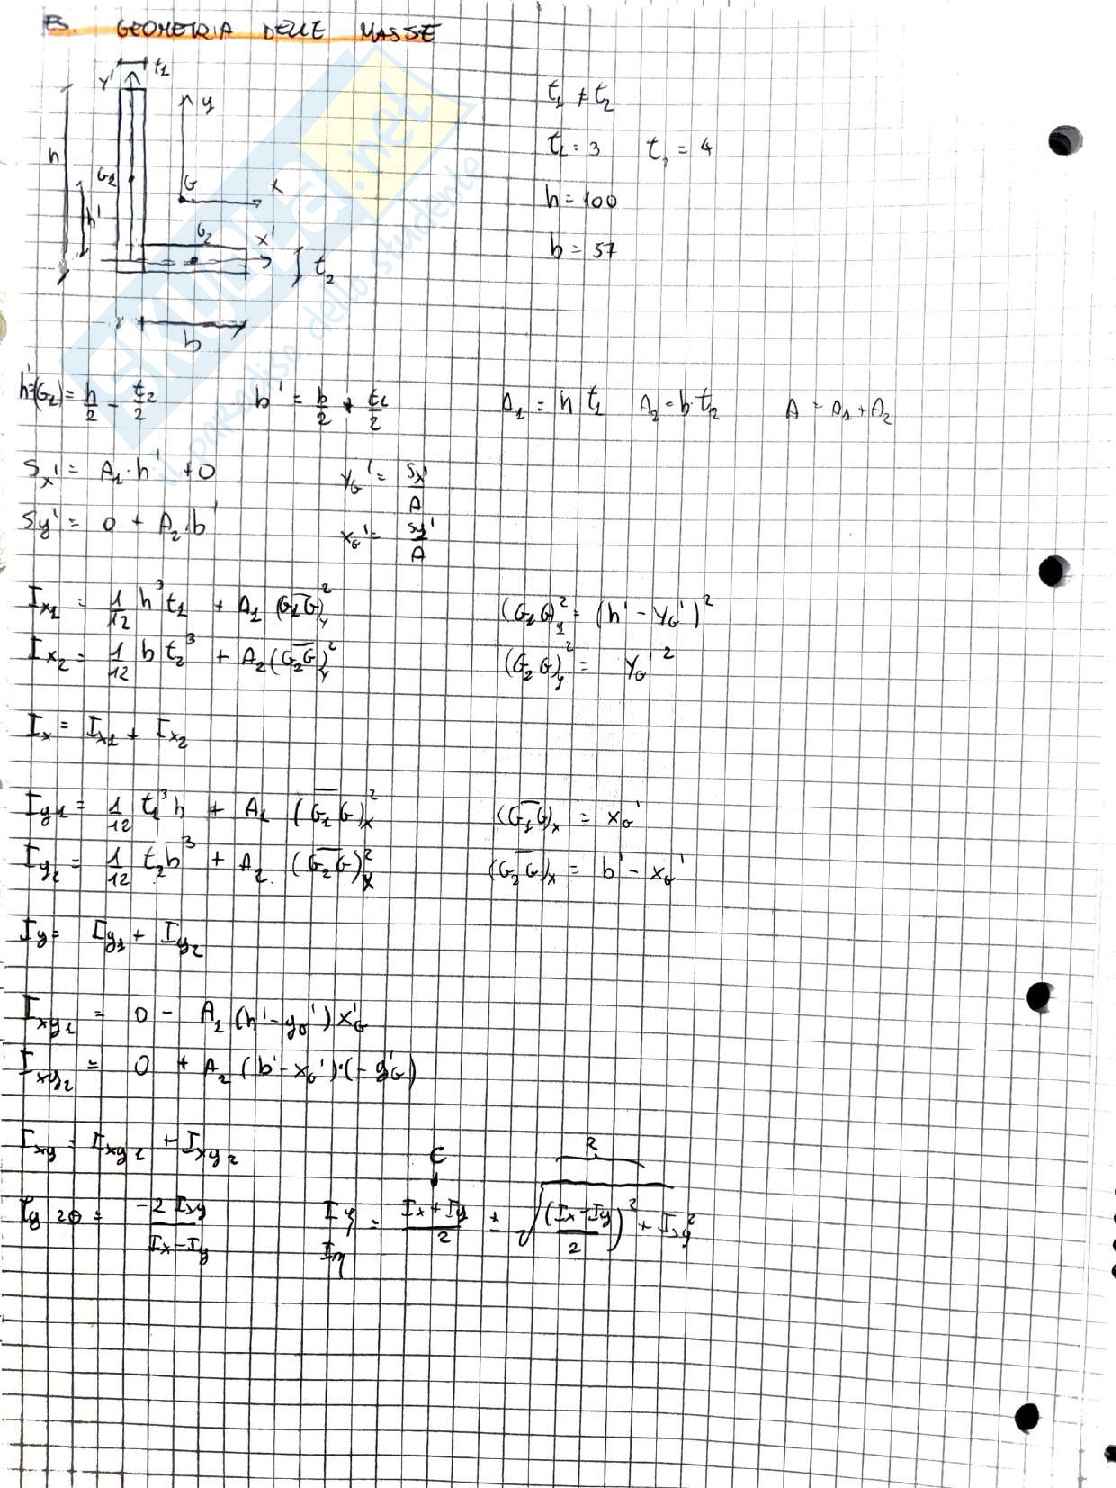 ES. GEOMETRIA DELLE MASSE
y' t₁
y
h
G₁
G x
h'
G₂ x'
t₂
b
t₁ ≠ t₂
t₂ = 3 t₁ = 4
h = 100
b = 57
h'(G₁) = h/2 - t₂/2 b' = b/2 + t₁/2 A₁ = h t₁ A₂ = b·t₂ A = A₁ + A₂
Sx' = A₁·h' + 0 yG' = Sx'/A
Sy' = 0 + A₂·b' xG' = Sy'/A
Ix₁ = 1/12 h³ t₁ + A₁ (G₁G)²y (G₁G)²y = (h' - yG')²
Ix₂ = 1/12 b t₂³ + A₂ (G₂G)²y (G₂G)²y = yG'²
Ix = Ix₁ + Ix₂
Iy₁ = 1/12 t₁³ h + A₁ (G₁G)²x (G₁G)x = xG'
Iy₂ = 1/12 t₂ b³ + A₂ (G₂G)²x (G₂G)x = b' - xG'
Iy = Iy₁ + Iy₂
Ixy₁ = 0 - A₁ (h' - yG') xG'
Ixy₂ = 0 + A₂ (b' - xG')·(-yG')
Ixy = Ixy₁ + Ixy₂
C R
Tg 2θ = -2 Ixy / Ix - Iy Iξ Iη = Ix + Iy / 2 ± √((Ix - Iy / 2)² + Ixy²)
skuola.net
il paradiso dello studente